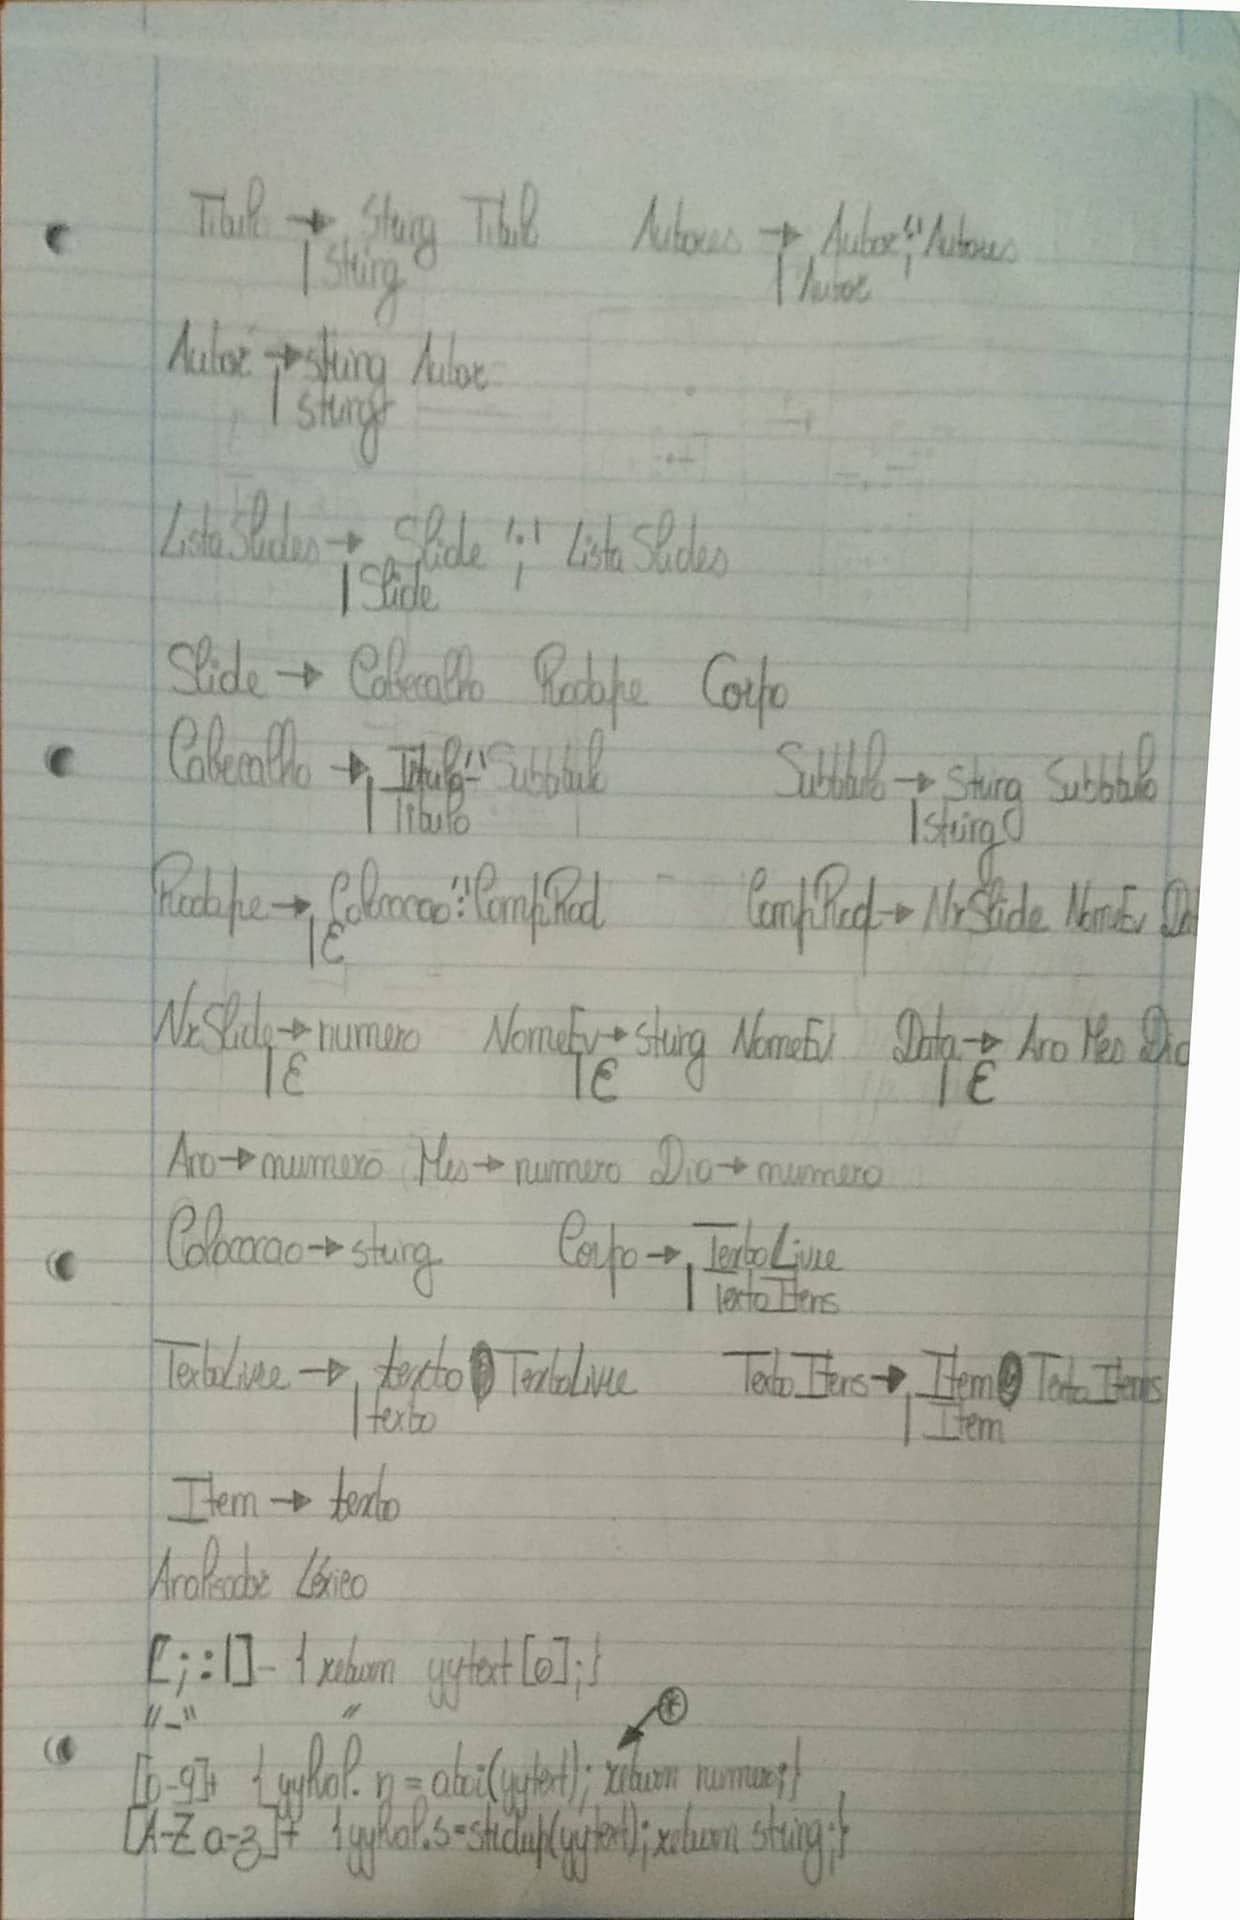 Titulo → String Titulo Autores → Autor ';' Autores
| String | Autor
Autor → string Autor
| string
ListaSlides → Slide ';' ListaSlides
| Slide
Slide → Cabecalho Rodape Corpo
Cabecalho → Titulo '-' Subtitulo Subtitulo → String Subtitulo
| Titulo | string
Rodape → Colocacao ':' CompRod CompRod → NrSlide NomeEv Da
| ε
NrSlide → numero NomeEv → string NomeEv Data → Ano Mes Dia
| ε | ε | ε
Ano → numero Mes → numero Dia → numero
Colocacao → string Corpo → TextoLivre
| TextoItens
TextoLivre → texto TextoLivre TextoItens → Item TextoItens
| texto | Item
Item → texto
Analisador Léxico
[;:|]- {return yytext[0];}
"-" "
[0-9]+ {yylval.n=atoi(yytext); return numero;}
[A-Za-z]+ {yylval.s=strdup(yytext); return string;}